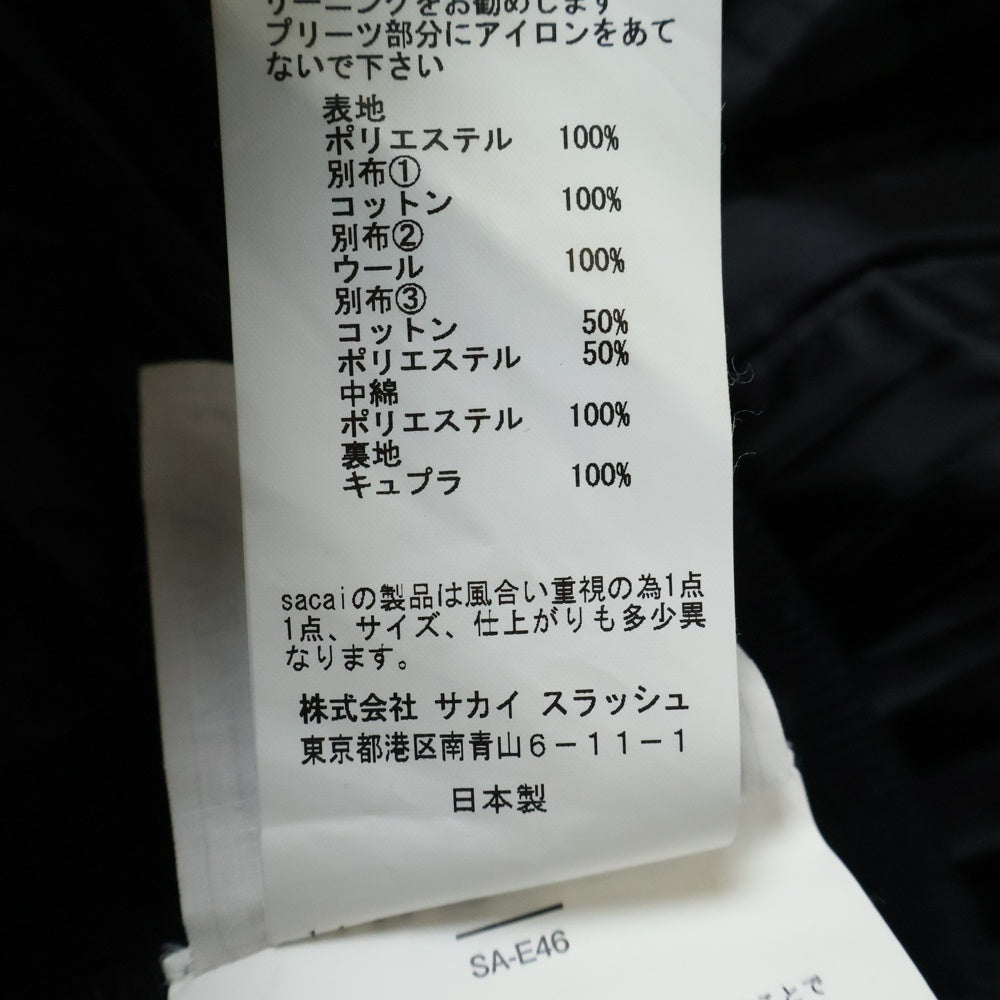 リーニングをお勧めします
プリーツ部分にアイロンをあて
ないで下さい
表地
ポリエステル 100%
別布①
コットン 100%
別布②
ウール 100%
別布③
コットン 50%
ポリエステル 50%
中綿
ポリエステル 100%
裏地
キュプラ 100%
sacaiの製品は風合い重視の為1点
1点、サイズ、仕上がりも多少異
なります。
株式会社 サカイ スラッシュ
東京都港区南青山6-11-1
日本製
SA-E46